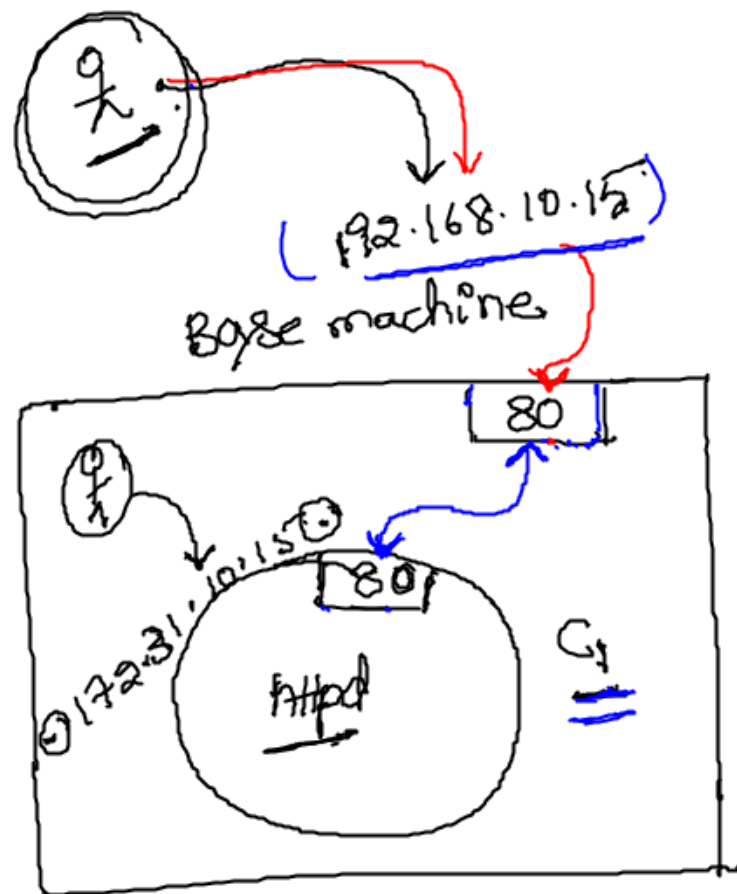 192.168.10.15
Base machine
80
172.31.10.15
80
httpd
C1